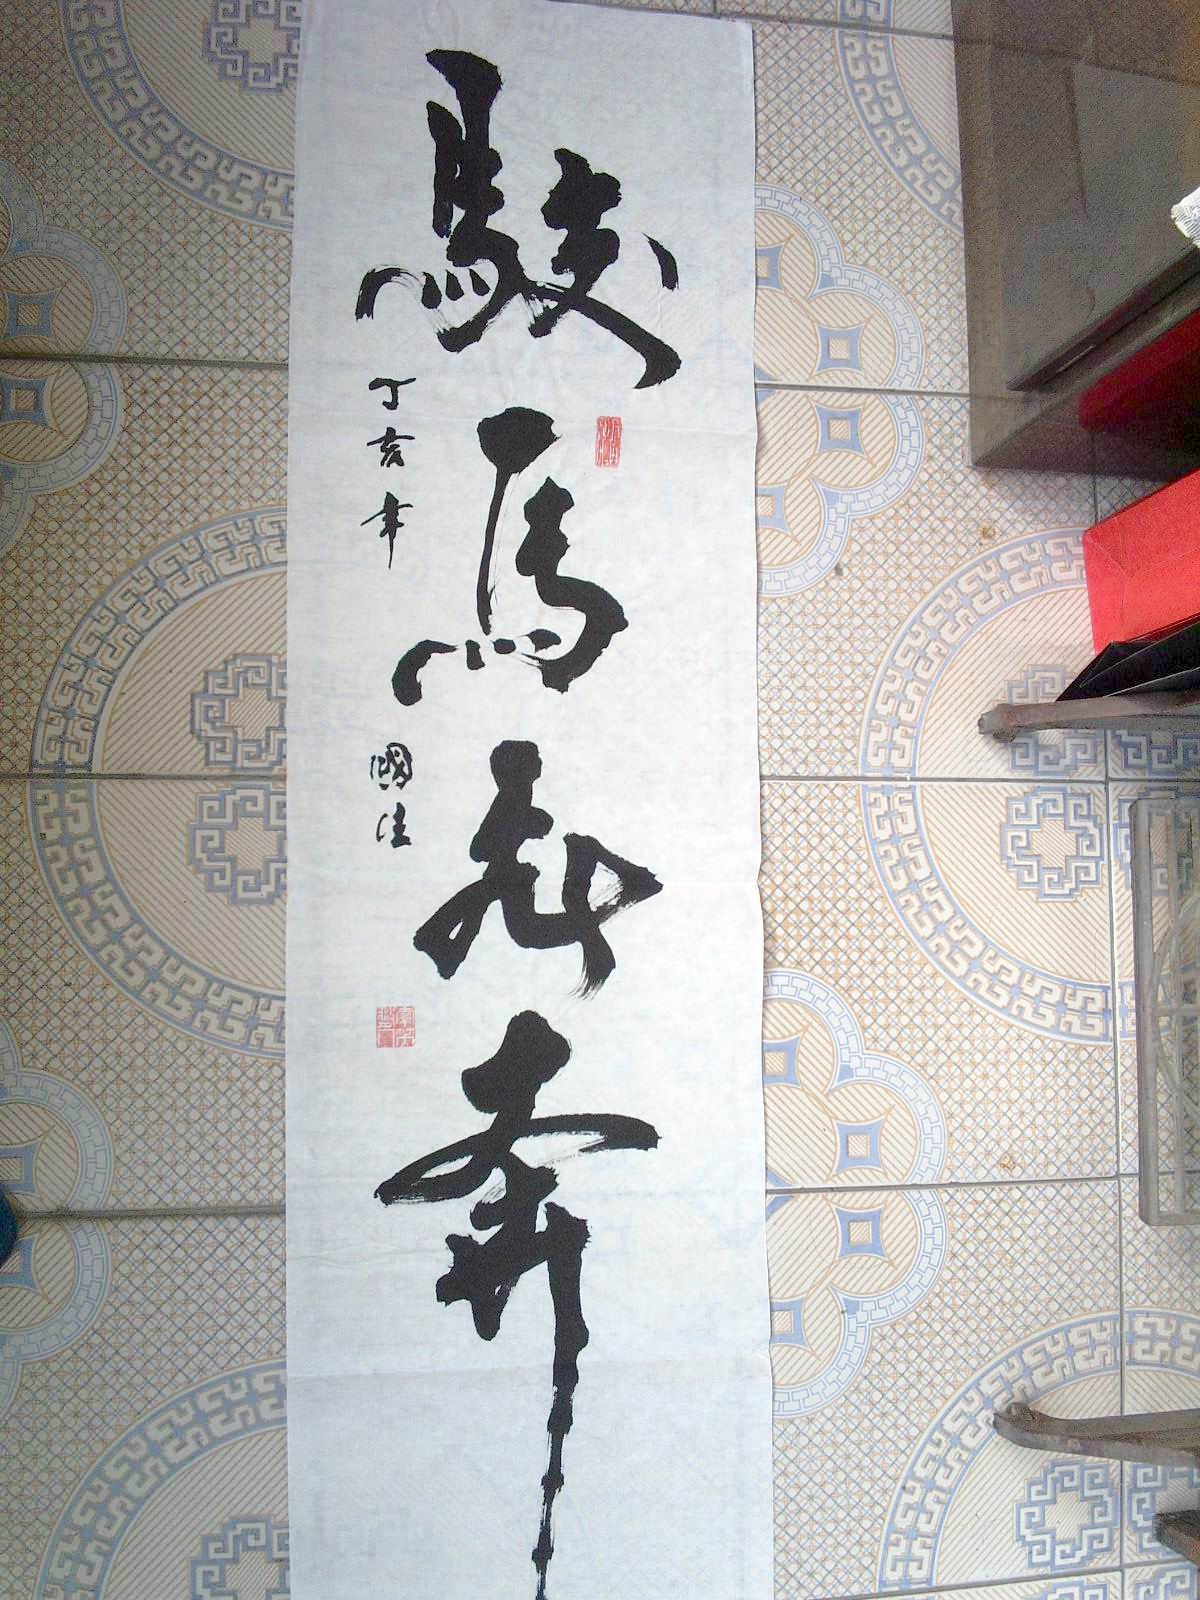 駿馬飛奔
丁亥年
國